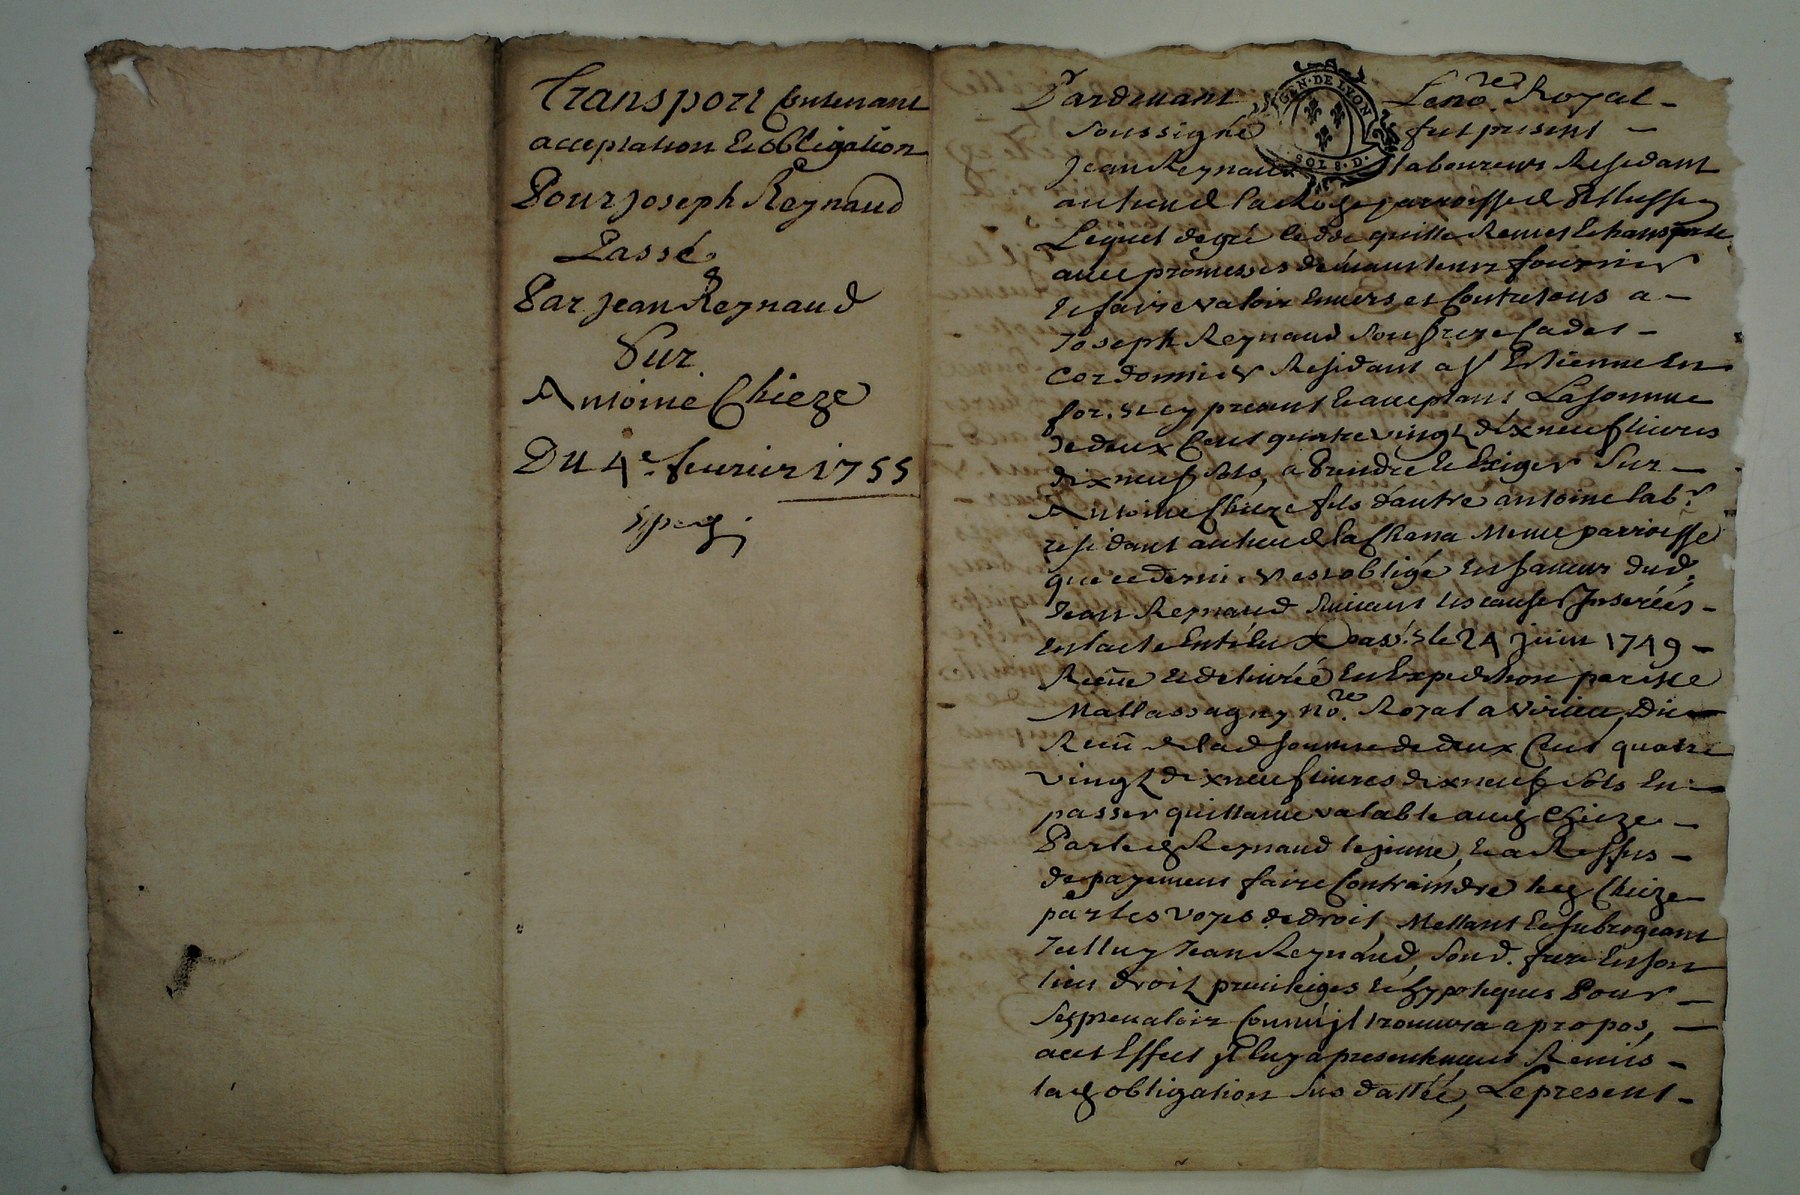 Transport Contenant
acceptation et obligation
Pour Joseph Reynaud
Passé
Par Jean Reynaud
Sur
Antoine Chieze
Du 4e. feurier 1755
Pardeuant Le no.re Royal
GEN. DE LYON
SOLS. D.
soussigné fut present
Jean Reynaud laboureur Residant
au lieu de parroisse de
Lequel de gré cede quitte Remet et transporte
auec promesses de maintenir fournir
et faire valoir enuers et Contre tous a
Joseph Reynaud son frere Cadet
Cordonnier Residant a St Estienne en
for. et cy present et acceptant La somme
de deux Cent quatre vingt dix neuf liures
dix neuf sols, a Prendre et Exiger Sur
Antoine Chieze fils d'autre antoine lab.r
residant au lieu de la Chana Meme parroisse
que ce dernier s'est obligé en faueur dud.
Jean Reynaud suiuant les causes Inserées
en l'acte passé le 24 juin 1749
Receu et deliuré en Expedition par Me
Mallassagny no.re Royal a Virieu, Du
Receu de lad somme de deux Cent quatre
vingt dix neuf liures dix neuf sols en
passer quittance valable aud Chieze
Par led Reynaud le jeune, et a Reffus
de payement faire Contraindre led Chieze
par les voyes de droit, Mettant et subrogeant
Jcelluy Jean Reynaud, sond. frere en son
lieu droit priuileiges et hypoteques Pour
s'en preualoir Comm'jl trouuera a propos,
a cet Effect jl luy a presentement Remis
lad obligation sus dattée, Le present